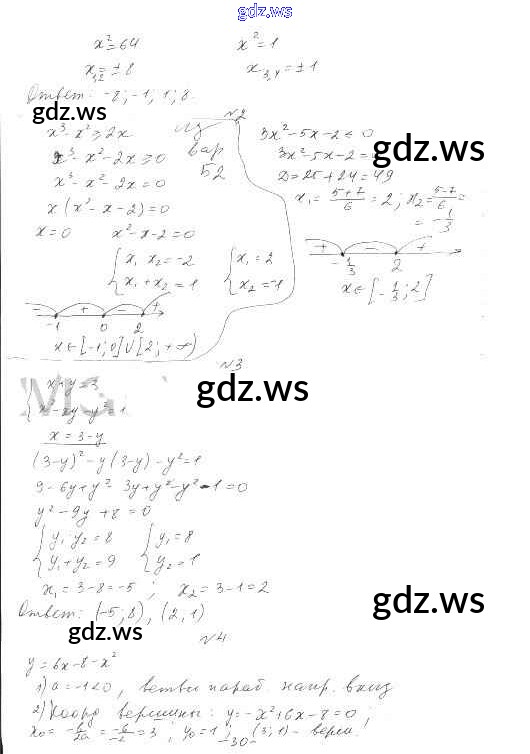 gdz.ws
x²=64        x²=1
x₁,₂=±8        x₃,₄=±1
Ответ: -8; -1; 1; 8.
N2
x³-x²≥2x
x³-x²-2x≥0
x³-x²-2x=0
x(x²-x-2)=0
x=0    x²-x-2=0
{x₁x₂=-2    {x₁=2
{x₁+x₂=1    {x₂=-1
+ +
-1    0    2
x∈[-1;0]∪[2;+∞)
из вар 52
3x²-5x-2≤0
3x²-5x-2=0
D=25+24=49
x₁=(5+7)/6=2; x₂=(5-7)/6=
=-1/3
+ - +
-1/3    2
x∈[-1/3;2]
gdz.ws
N3
gdz.ws
{x+y=3
{x²-xy-y²=1
x=3-y
(3-y)²-y(3-y)-y²=1
9-6y+y²-3y+y²-y²-1=0
y²-9y+8=0
{y₁y₂=8    {y₁=8
{y₁+y₂=9    {y₂=1
x₁=3-8=-5;    x₂=3-1=2
Ответ: (-5;8), (2,1)
gdz.ws
gdz.ws
N4
y=6x-8-x²
1) a=-1<0, ветви параб. напр. вниз
2) Коорд вершины: y=-x²+6x-8=0;
x₀=-b/2a=-6/-2=3; y₀=1; (3;1)- верш.
-30-